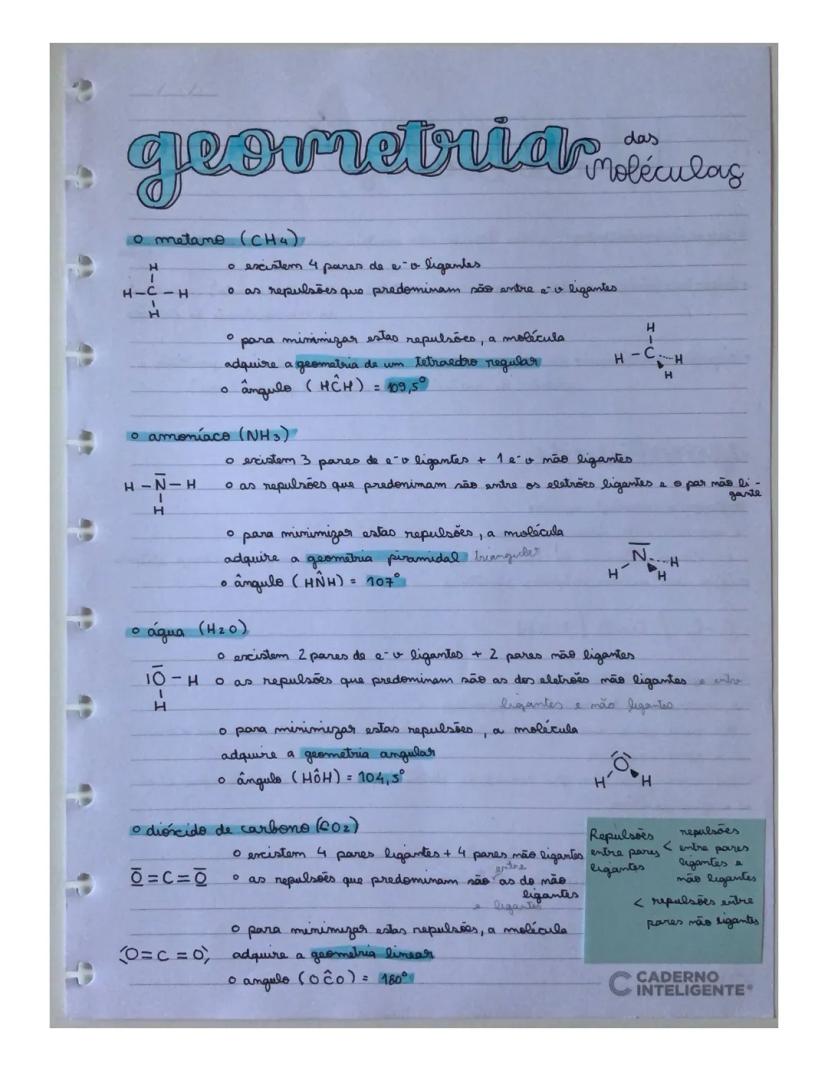 geometria das
Moléculas
o metano (CH4)
H
H-C-H
H
o existem 4 pares de e⁻v ligantes
o as repulsões que predominam são entre e⁻v ligantes
o para minimizar estas repulsões, a molécula
adquire a geometria de um tetraedro regular
o ângulo (HĈH) = 109,5°
H
H-C H
H
o amoníaco (NH3)
o existem 3 pares de e⁻v ligantes + 1 e⁻v não ligantes
H-N-H
H
o as repulsões que predominam são entre os eletrões ligantes e o par não li-
gante
o para minimizar estas repulsões, a molécula
adquire a geometria piramidal triangular
o ângulo (HN̂H) = 107°
N H
H H
o água (H2O)
o existem 2 pares de e⁻v ligantes + 2 pares não ligantes
IO-H
H
o as repulsões que predominam são as dos eletrões não ligantes e entre
ligantes e não ligantes
o para minimizar estas repulsões, a molécula
adquire a geometria angular
o ângulo (HÔH) = 104,5°
O
H H
o dióxido de carbono (CO2)
o existem 4 pares ligantes + 4 pares não ligantes
O=C=O
o as repulsões que predominam são entre as do não
ligantes
e ligantes
o para minimizar estas repulsões, a molécula
O=C=O
adquire a geometria linear
o angulo (OĈO) = 180°
Repulsões entre pares ligantes < repulsões entre pares ligantes e não ligantes
< repulsões entre
pares não ligantes
CADERNO
INTELIGENTE®